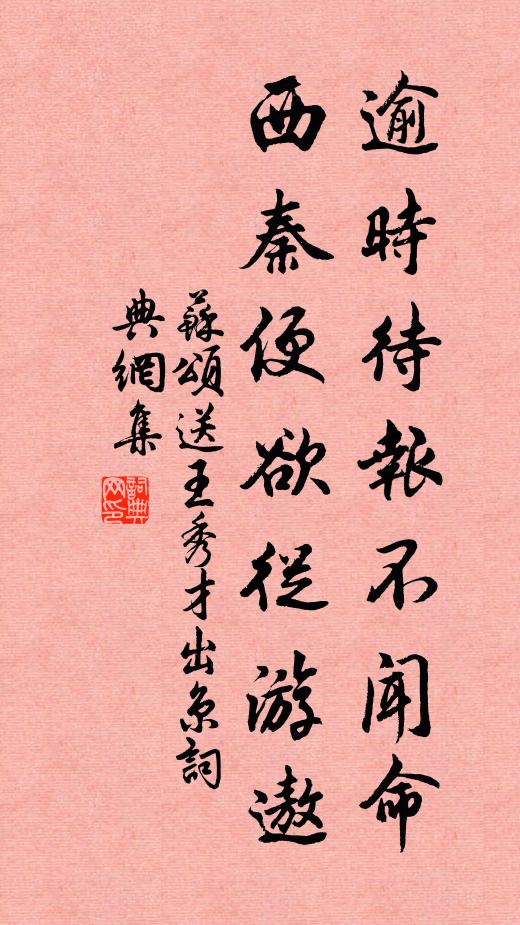 逾時待報不聞命
西秦便欲從游遨
蘇頌送王秀才出京詞
典網集
詞典网印